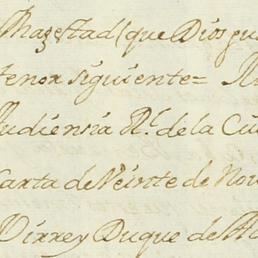 Magestad (que Dios gu
tenor siguiente =
Audiensia Rl. de la Ciu
Carta de Veinte de Nov
Virrey Duque de Al